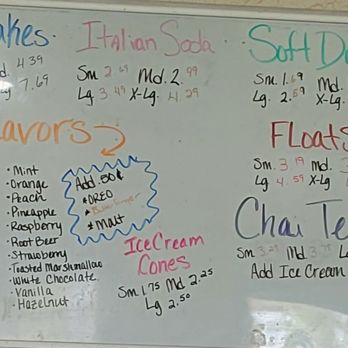 akes.
Italian Soda
Soft D
d. 4.39
g 7.69
Sm. 2.69 Md. 2.99
Lg 3.49 X-Lg 4.29
Sm. 1.69 Md.
Lg. 2.59 X-Lg.
avors
FLoats
Sm. 3.19 md. 3.
Lg 4.59 X-Lg
• Mint
• Orange
• Peach
• Pineapple
• Raspberry
• Root Beer
• Strawberry
• Toasted Marshmallow
• White Chocolate
• Vanilla
• Hazelnut
Add .50¢
*OREO
*Butterfinger
*Malt
Ice Cream
Cones
Sm 1.75 Md 2.25
Lg 2.50
Chai Te
Sm 3.29 Md 3. L
Add Ice Cream